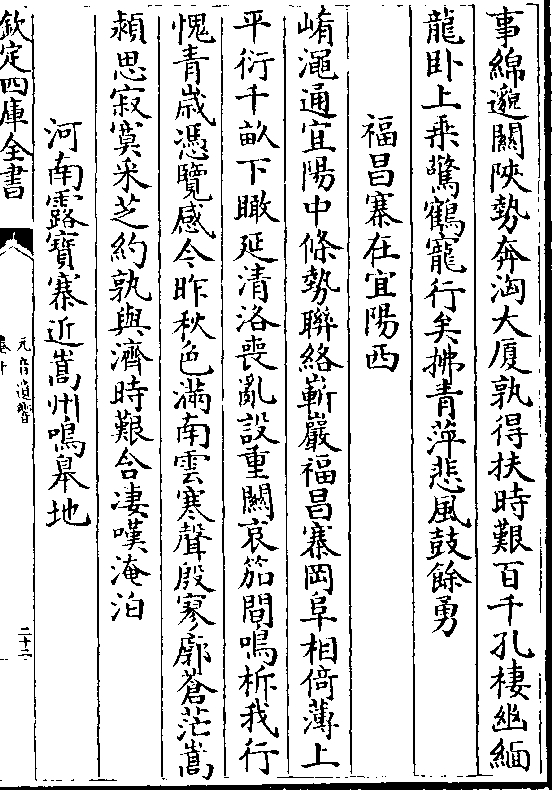 事綿邈關陜勢奔洶大厦孰得扶時艱百千孔棲幽緬
龍卧上乘驚鶴寵行矣拂青萍悲風鼓餘勇
福昌寨在宜陽西
崤澠通宜陽中條勢聯絡嶄巖福昌寨岡阜相倚薄上
平衍千畝下瞰延清洛喪亂設重關哀笳間鳴柝我行
愧青嵗憑覽感今昨秋色滿南雲寒聲殷寥廓蒼茫嵩
潁思寂寞采芝約孰與濟時艱含凄嘆淹泊
河南露寳寨近嵩州鳴臯地
欽定四庫全書
元音遺響
卷十
二十二